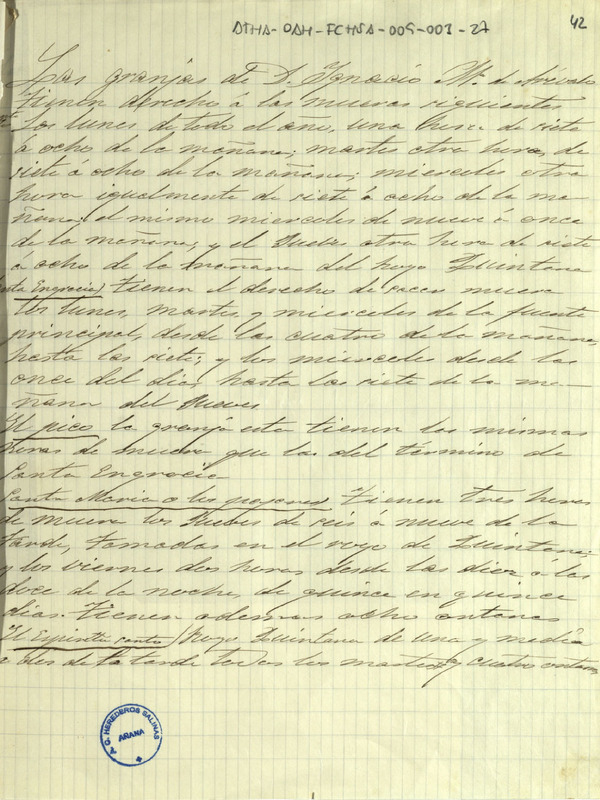 ATHA-DAH-FCHSA-009-001-27
42
Las granjas de D. Ignacio Mª. de Arévalo
Tienen derecho á las mueras siguientes
Los lunes de todo el año, una hora de siete
á ocho de la mañana; martes otra hora, de
siete á ocho de la mañana; miercoles otra
hora igualmente de siete á ocho de la ma-
ñana; el mismo miercoles de nueve á once
de la mañana, y el Jueves otra hora de siete
á ocho de la mañana del hoyo Quintana
Santa Engracia) Tienen el derecho de sacar muera
los lunes, martes y miercoles de la fuente
principal, desde las cuatro de la mañana,
hasta las siete; y los miercoles desde las
once del dia, hasta las siete de la ma-
ñana del Jueves
El pico la granja esta tienen las mismas
horas de muera que las del término de
Santa Engracia
Santa Maria o los pozones) Tienen tres horas
de muera los Jueves de seis á nueve de la
tarde, tomadas en el royo de Quintana;
y los viernes dos horas desde las diez á las
doce de la noche, de quince en quince
dias. Tienen ademas ocho ontanas
El Espiritu santo) Royo Quintana de una y media
a dos de la tarde todos los martes y cuatro ontanas
G. HEREDEROS SALINAS
AÑANA